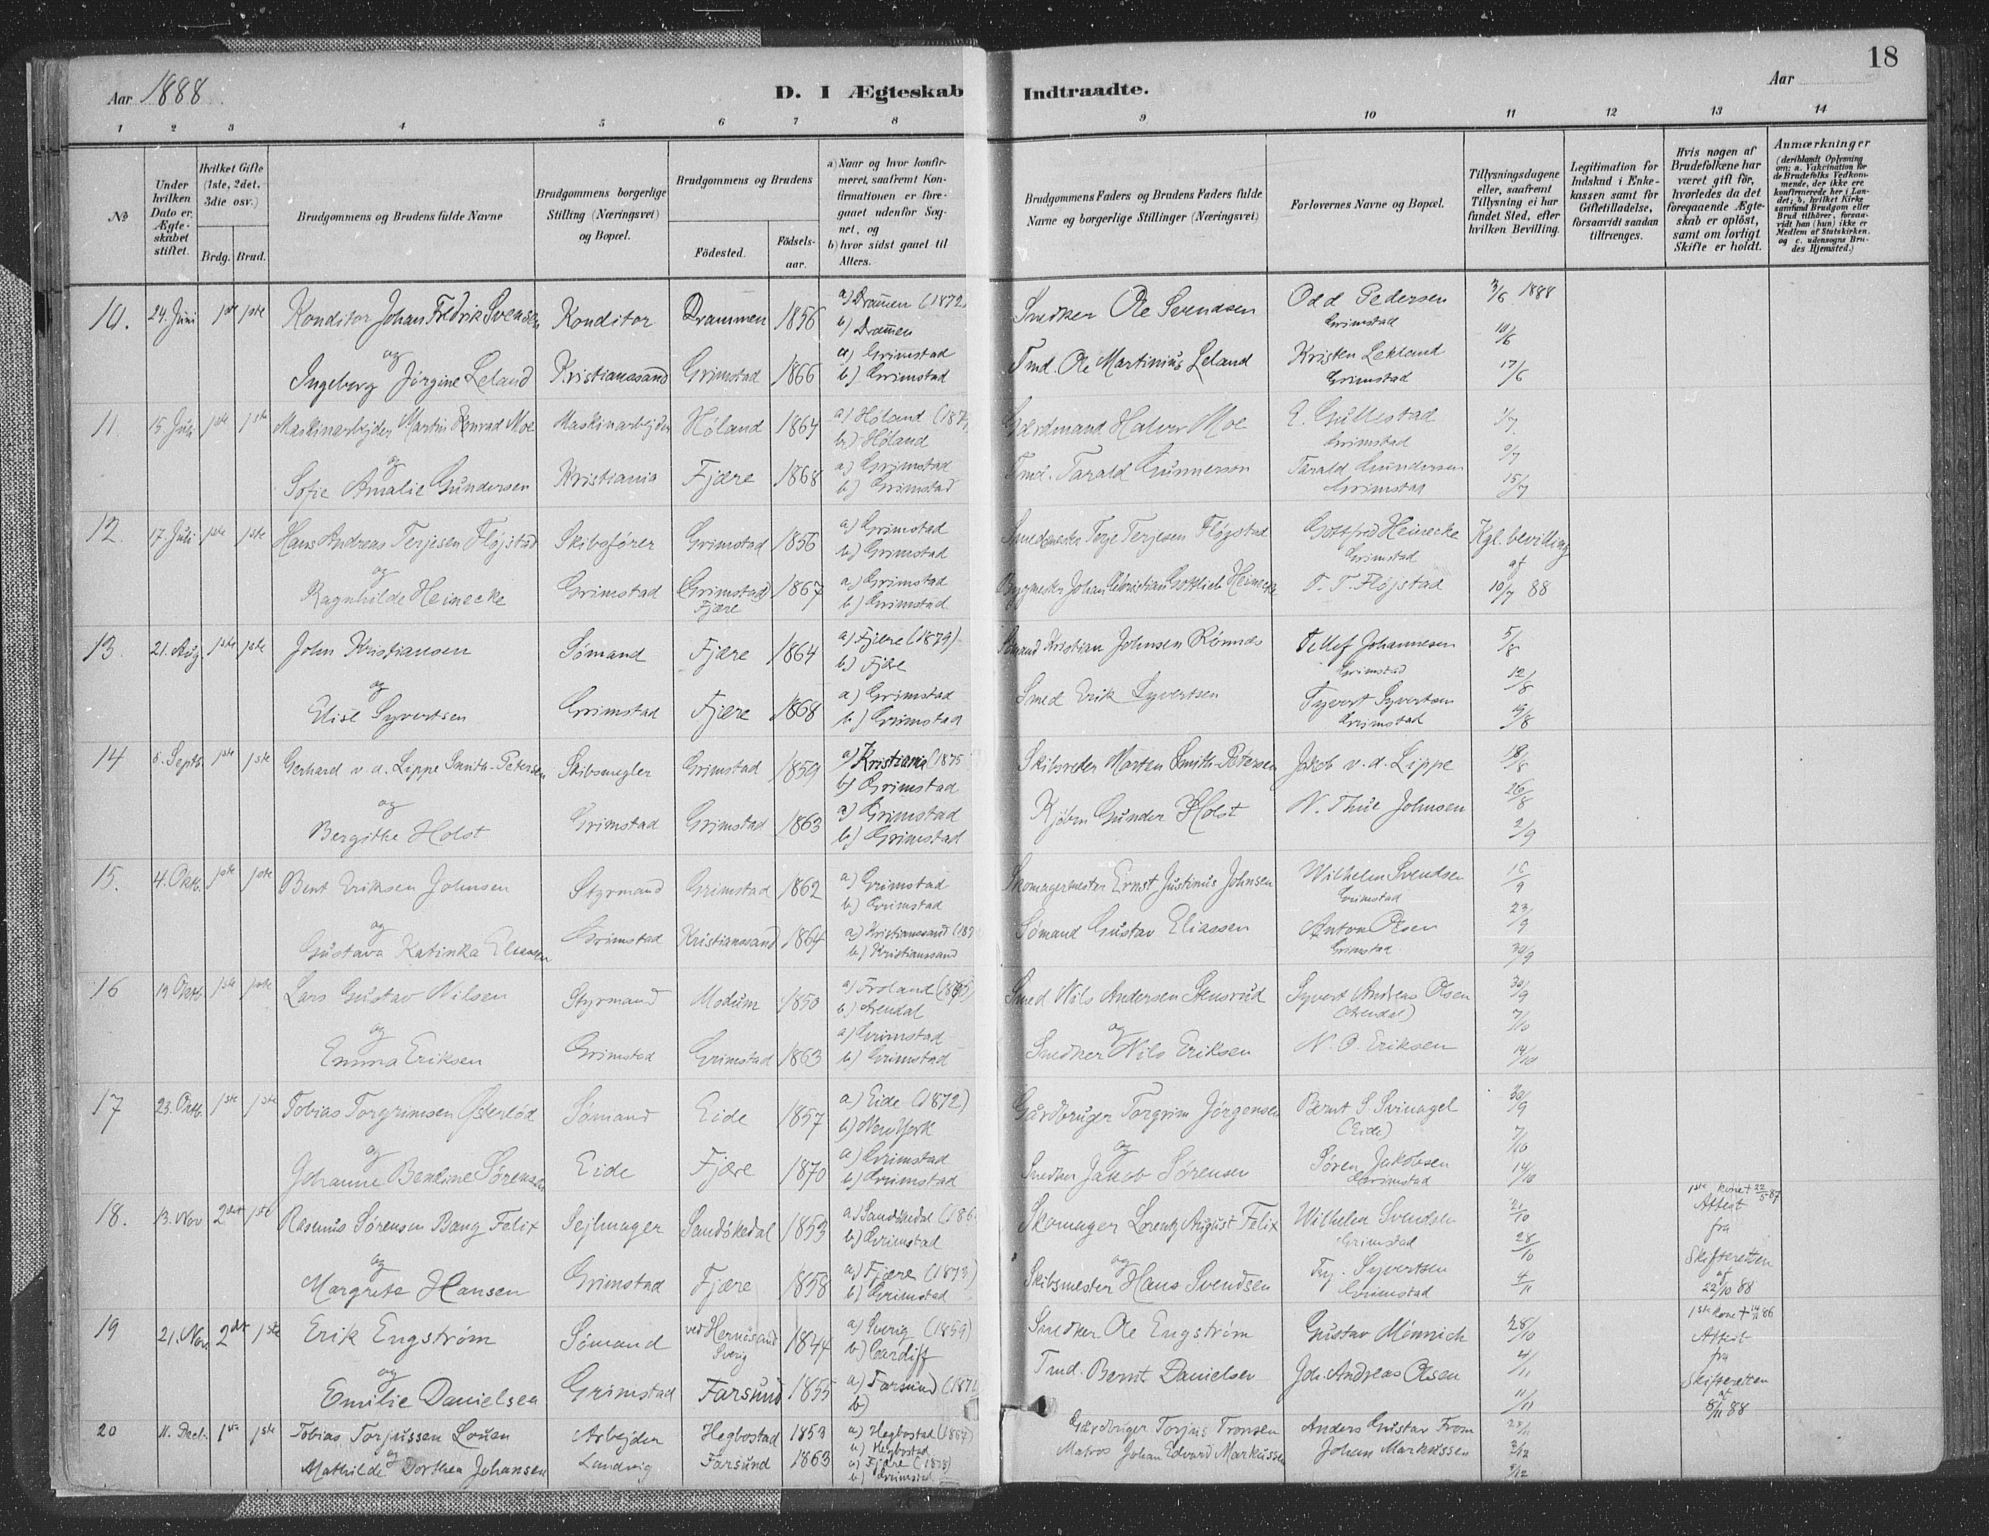 18
Aar 1888.
D. I Ægteskab Indtraadte.
Aar
1 2 3 4 5 6 7 8 9 10 11 12 13 14
No
Under hvilken Dato er Ægteskabet stiftet.
Hvilket Gifte (1ste, 2det, 3die osv.)
Brdg. Brud.
Brudgommens og Brudens fulde Navne
Brudgommens borgerlige Stilling (Næringsvei) og Bopæl.
Brudgommens og Brudens
Fødested.
Fødsels-aar.
a) Naar og hvor konfirmeret, saafremt Konfirmationen er foregaaet udenfor Sognet, og
b) hvor sidst gaaet til Alters.
Brudgommens Faders og Brudens Faders fulde Navne og borgerlige Stillinger (Næringsvei)
Forlovernes Navne og Bopæl.
Tillysningsdagene eller, saafremt Tillysning ei har fundet Sted, efter hvilken Bevilling.
Legitimation for Indskud i Enkekassen samt for Giftetilladelse, forsaavidt saadan tiltrænges.
Hvis nogen af Brudefolkene har været gift før, hvorledes da det foregaaende Ægteskab er opløst, samt om lovligt Skifte er holdt.
Anmærkninger
(deriblandt Oplysning om: a. Vaccination for de Brudefolks Vedkommende, der ikke ere konfirmerede her i Landet; b. hvilket Kirkesamfund Brudgom eller Brud tilhører, forsaavidt han (hun) ikke er Medlem af Statskirken, og c. udensogns Brudes Hjemsted.)
10. 24. Juni 1ste 1ste Konditor Johan Fredrik Svensen Konditor Drammen 1856 a) Drammen (1872) Snedker Ole Svendsen Odd Pedersen 3/6 1888
b) Drammen Grimstad 10/6
og a) Grimstad
Ingeborg Jørgine Leland Kristianssand Grimstad 1866 b) Grimstad Tmd. Ole Martinius Leland Kristen Lekland 17/6
Grimstad
11. 15. Juli 1ste 1ste Maskinarbejder Martin Konrad Moe Maskinarbejder Høland 1864 a) Høland Gardmand Halvor Moe E. Gullestad 1/7
b) Høland Grimstad
og a) Grimstad 8/7
Sofie Amalie Gundersen Kristiania Fjære 1868 b) Grimstad Tmd. Tarald Gunnerson Tarald Gundersen 15/7
Grimstad
12. 17. Juli 1ste 1ste Hans Andreas Terjesen Fløjstad Skibsfører Grimstad 1856 a) Grimstad Smedmester Terje Terjesen Fløgstad Gottfred Heinecke Kgl. bevilling
b) Grimstad Grimstad af
og a) Grimstad
Ragnhilde Heinecke Grimstad Grimstad 1867 b) Grimstad Bygmester Johan Christian Gottlieb Heinecke T. T. Fløjstad 10/7 88
Fjære
13. 21. Aug. 1ste 1ste John Kristiansen Sømand Fjære 1864 a) Fjære (1879) Sømand Kristian Johnsen Rønnes Tellef Johannesen 5/8
b) Fjære Grimstad 12/8
og a) Grimstad
Elise Syvertsen Grimstad Fjære 1868 b) Grimstad Smed Erik Syvertsen Syvert Syvertsen 19/8
Grimstad
14 8. Septb. 1ste 1ste Gerhard v. d. Lippe Smith-Petersen Skibsmegler Grimstad 1859 a) Kristiania (1875 Skibsreder Morten Smith-Petersen Jakob v. d. Lippe 19/8
b) Grimstad 26/8
og a) Grimstad
Bergithe Holst Grimstad Grimstad 1863 b) Grimstad Kjøbm. Gunder Holst N. Thue Johnsen 2/9
15. 4. Oktb. 1ste 1ste Bent Eriksen Johnsen Styrmand Grimstad 1862 a) Grimstad Skomagermester Ernst Justinus Johnsen Wilhelm Svendsen 16/9
b) Grimstad Grimstad 23/9
og a) Kristianssand
Gustava Katinka Eliassen Grimstad Kristianssand 1864 b) Kristianssand Sømand Gustav Eliassen Anton Olsen 30/9
Grimstad
16 19 Oktb. 1ste 1ste Lars Gustav Nilsen Styrmand Modum 1850 a) Froland Smed Nils Andersen Stensrud Syvert Andreas Olsen 30/9
b) Arendal (Arendal) 7/10
og a) Grimstad og
Emma Eriksen Grimstad Grimstad 1863 b) Grimstad Snedker Nils Eriksen N. O. Eriksen 14/10
17 23. Oktb. 1ste 1ste Tobias Torgrimsen Østerlød Sømand Eide 1857 a) Eide (1872) Gårdbruger Torgrim Jørgensen Bernt S. Svinagel 30/9
b) New York (Eide) 7/10
og a) Grimstad og
Johanne Bentine Sørensen Eide Fjære 1870 b) Grimstad Snedker Jakob Sørensen Søren Jakobsen 14/10
Grimstad
18. 13. Nov 2det 1ste Rasmus Sørensen Bang Felix Sejlmager Sandøkedal 1853 a) Sandøkedal Skomager Lorentz August Felix Wilhelm Svendsen 21/10 1ste kone + 22/5-87
b) Grimstad Grimstad 28/10 Attest fra
og a) Fjære (1873) og Skifteretten
Margrete Hansen Grimstad Fjære 1858 b) Grimstad Skibsmester Hans Svendsen Try. Syvertsen 4/11 af
Grimstad 22/10 88
19 21. Nov. 2det 1ste Erik Engstrøm Sømand ved Hernøsand 1844 a) Sverig (1859) Snedker Ole Engstrøm Gustav Mønnich 28/10 1ste kone + 14/11 86
Sverig b) Cardiff 4/11 Attest fra
og a) Farsund Skifteretten
Emilie Danielsen Grimstad Farsund 1855 b) Tmd. Bernt Danielsen Joh. Andreas Olsen 11/11 af
5/11 88
20 11. Dcb. 1ste 1ste Tobias Torjussen Louen Arbejder Hegbostad 1853 a) Hegbostad (1867) Gårdbruger Torjus Tronsen Anders Gustav From 25/11
og b) Hegbostad 2/12
Mathilde Dorthea Johansen Landvig Farsund 1863 a) Fjære (1878) Matros Johan Edvard Markussen Johan Markussen 9/12
b) Grimstad